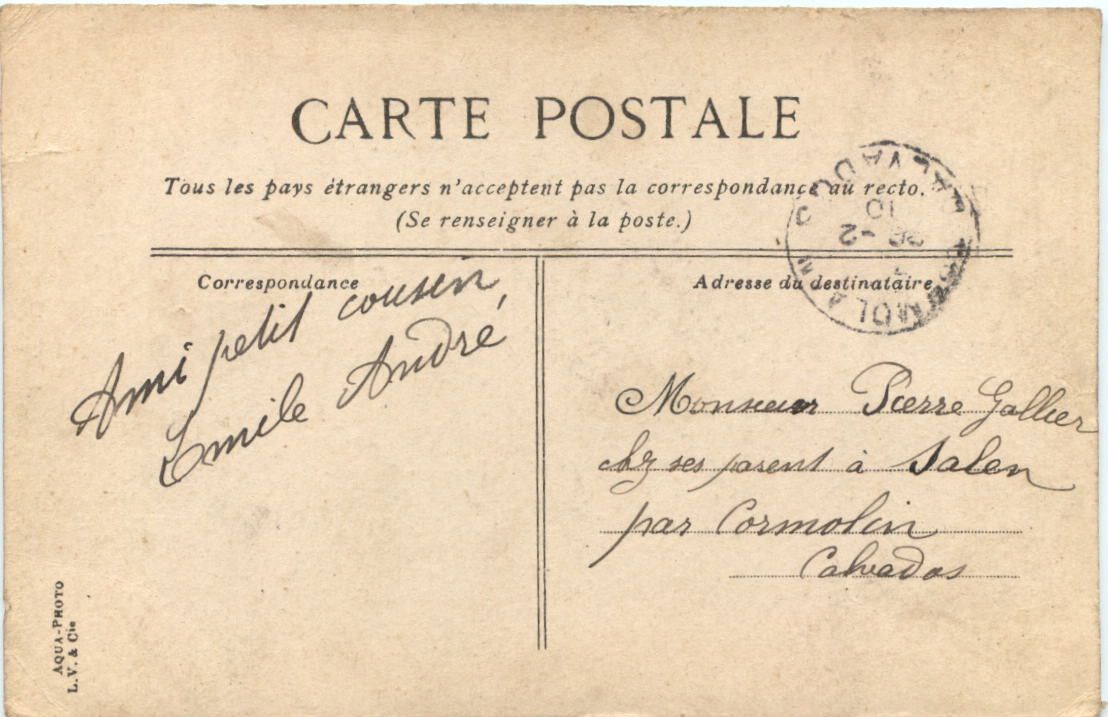 CARTE POSTALE
Tous les pays étrangers n'acceptent pas la correspondance au recto.
(Se renseigner à la poste.)
Correspondance
A mi petit cousin
Emile André
Adresse du destinataire
Monsieur Pierre Gallier
chz ses parent à Salen
par Cormolin
Calvados
CALVADOS
10
26-2
AQUA-PHOTO
L.V. & Cie